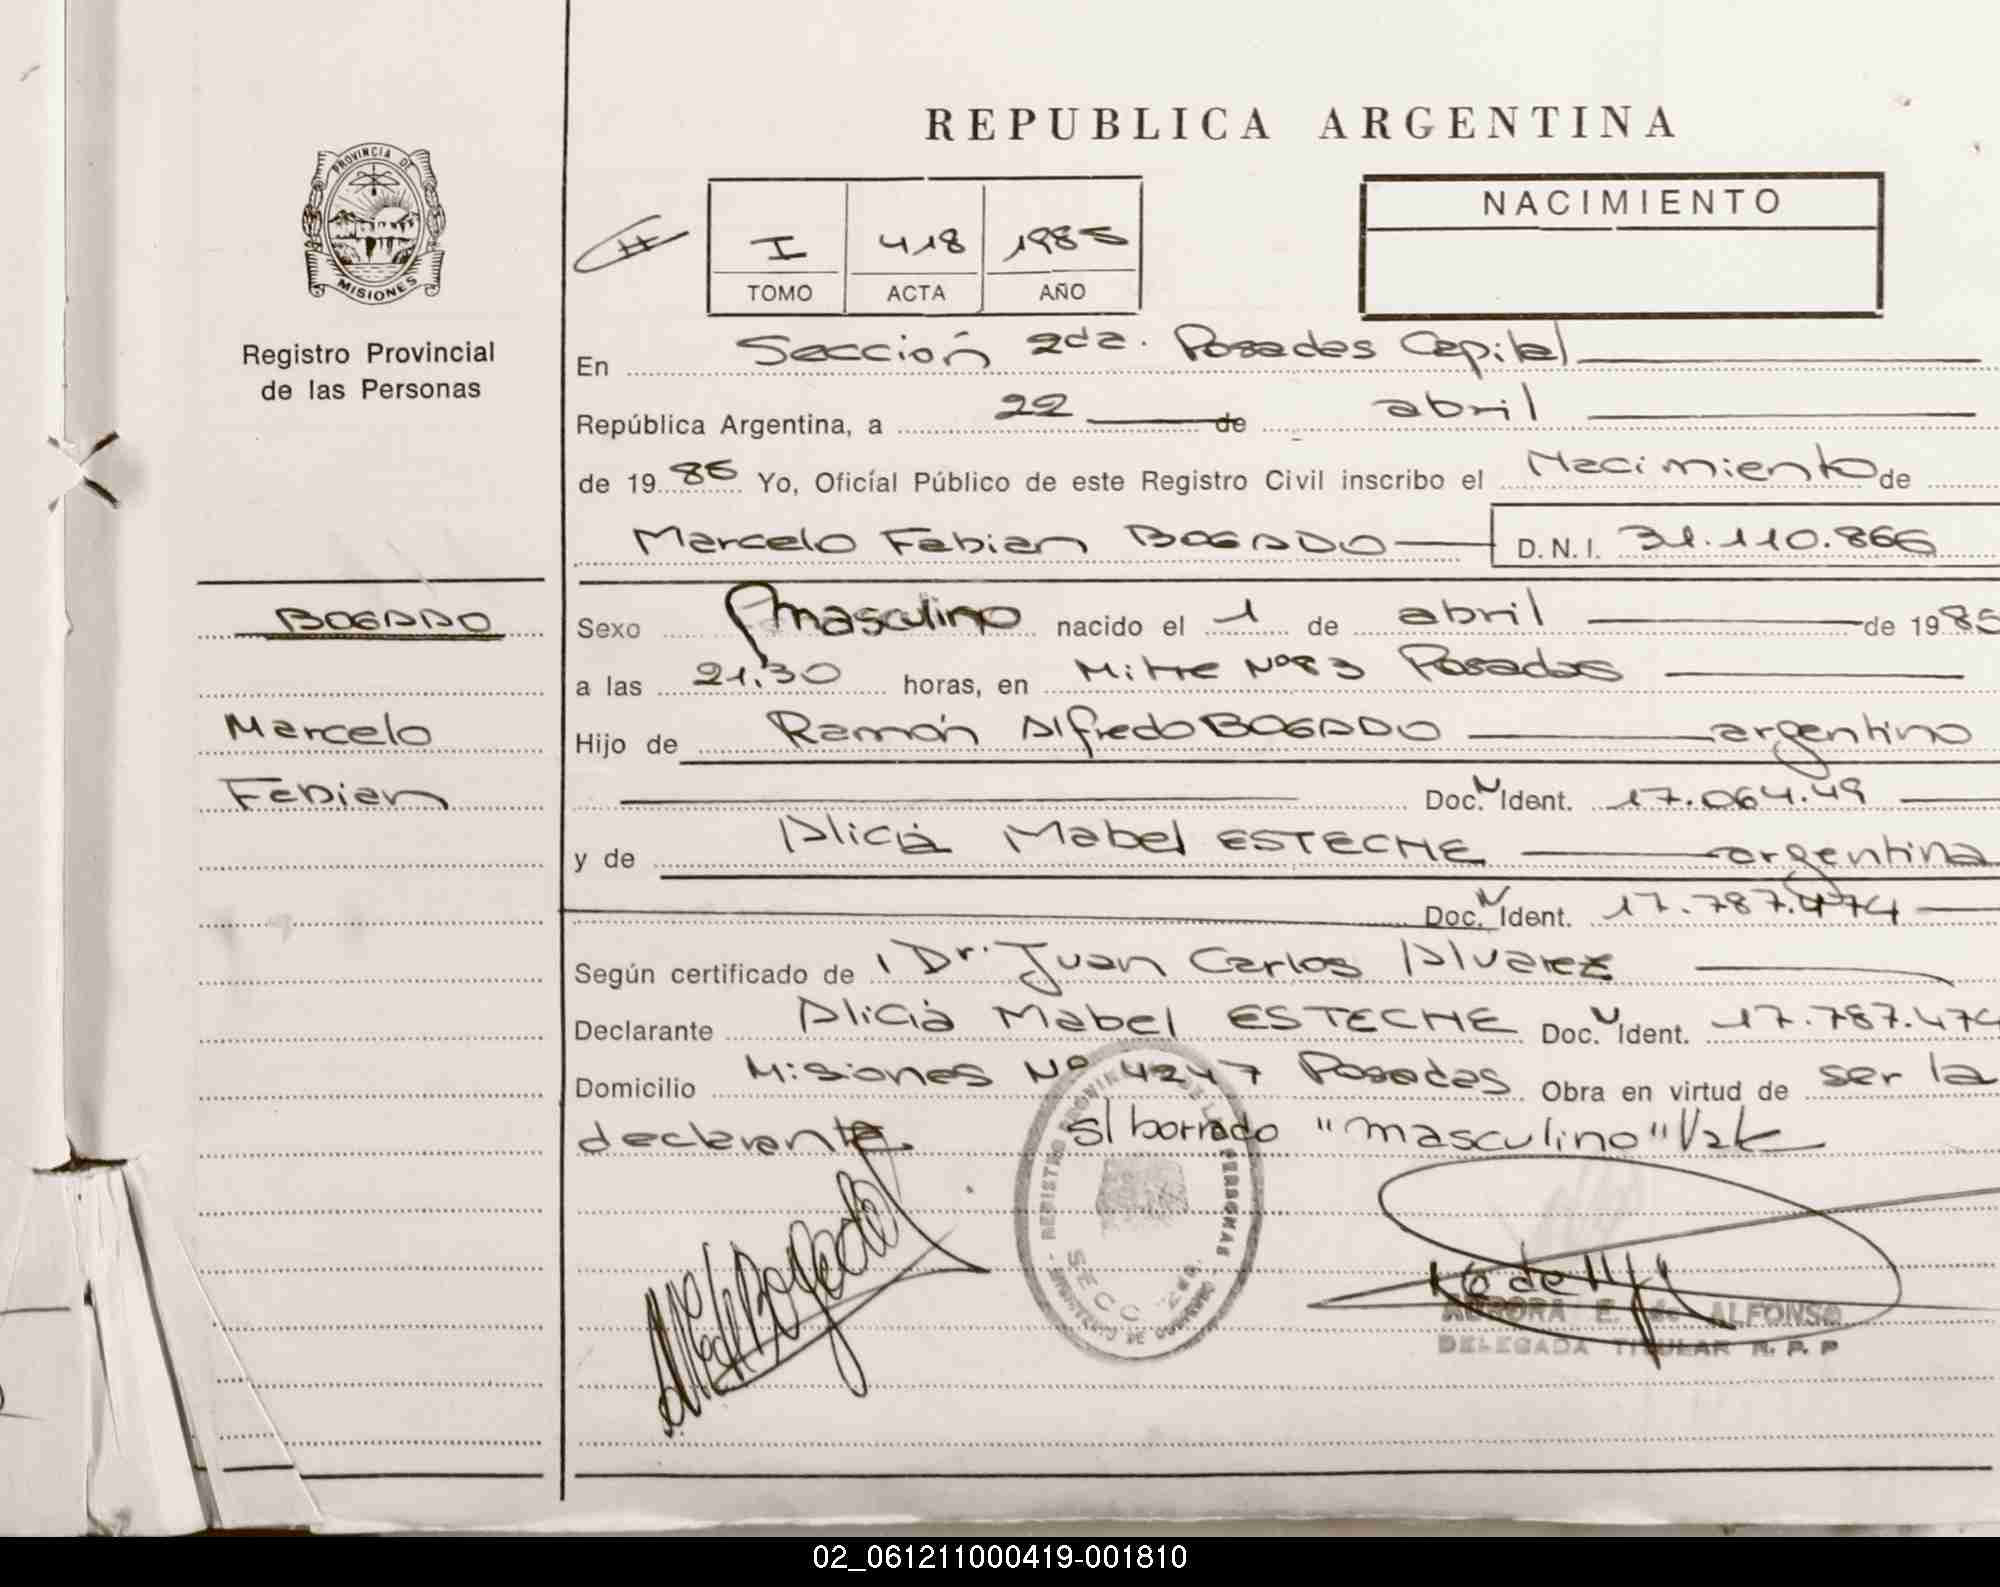 REPUBLICA ARGENTINA
PROVINCIA DE
MISIONES
Registro Provincial
de las Personas
I 418 1985
TOMO ACTA AÑO
NACIMIENTO
En Sección 2da. Posadas Capital
República Argentina, a 22 de abril
de 1985 Yo, Oficial Público de este Registro Civil inscribo el Nacimiento de
Marcelo Fabian BOGADO D.N.I. 31.110.866
BOGADO
Marcelo
Fabian
Sexo masculino nacido el 1 de abril de 1985
a las 21.30 horas, en Mitre Nº83 Posadas
Hijo de Ramón Alfredo BOGADO argentino
Doc. N Ident. 17.064.49
y de Alicia Mabel ESTECHE argentina
Doc. N Ident. 17.787.474
Según certificado de Dr. Juan Carlos Alvarez
Declarante Alicia Mabel ESTECHE Doc. N Ident. 17.787.474
Domicilio Misiones Nº 4247 Posadas Obra en virtud de ser la
declarante. s/borrado "masculino" Vale
REGISTRO PROVINCIAL DE LAS PERSONAS
SECC 2da.
MINISTERIO DE GOBIERNO
AURORA E. de ALFONSO
DELEGADA TITULAR R. P. P
02_061211000419-001810